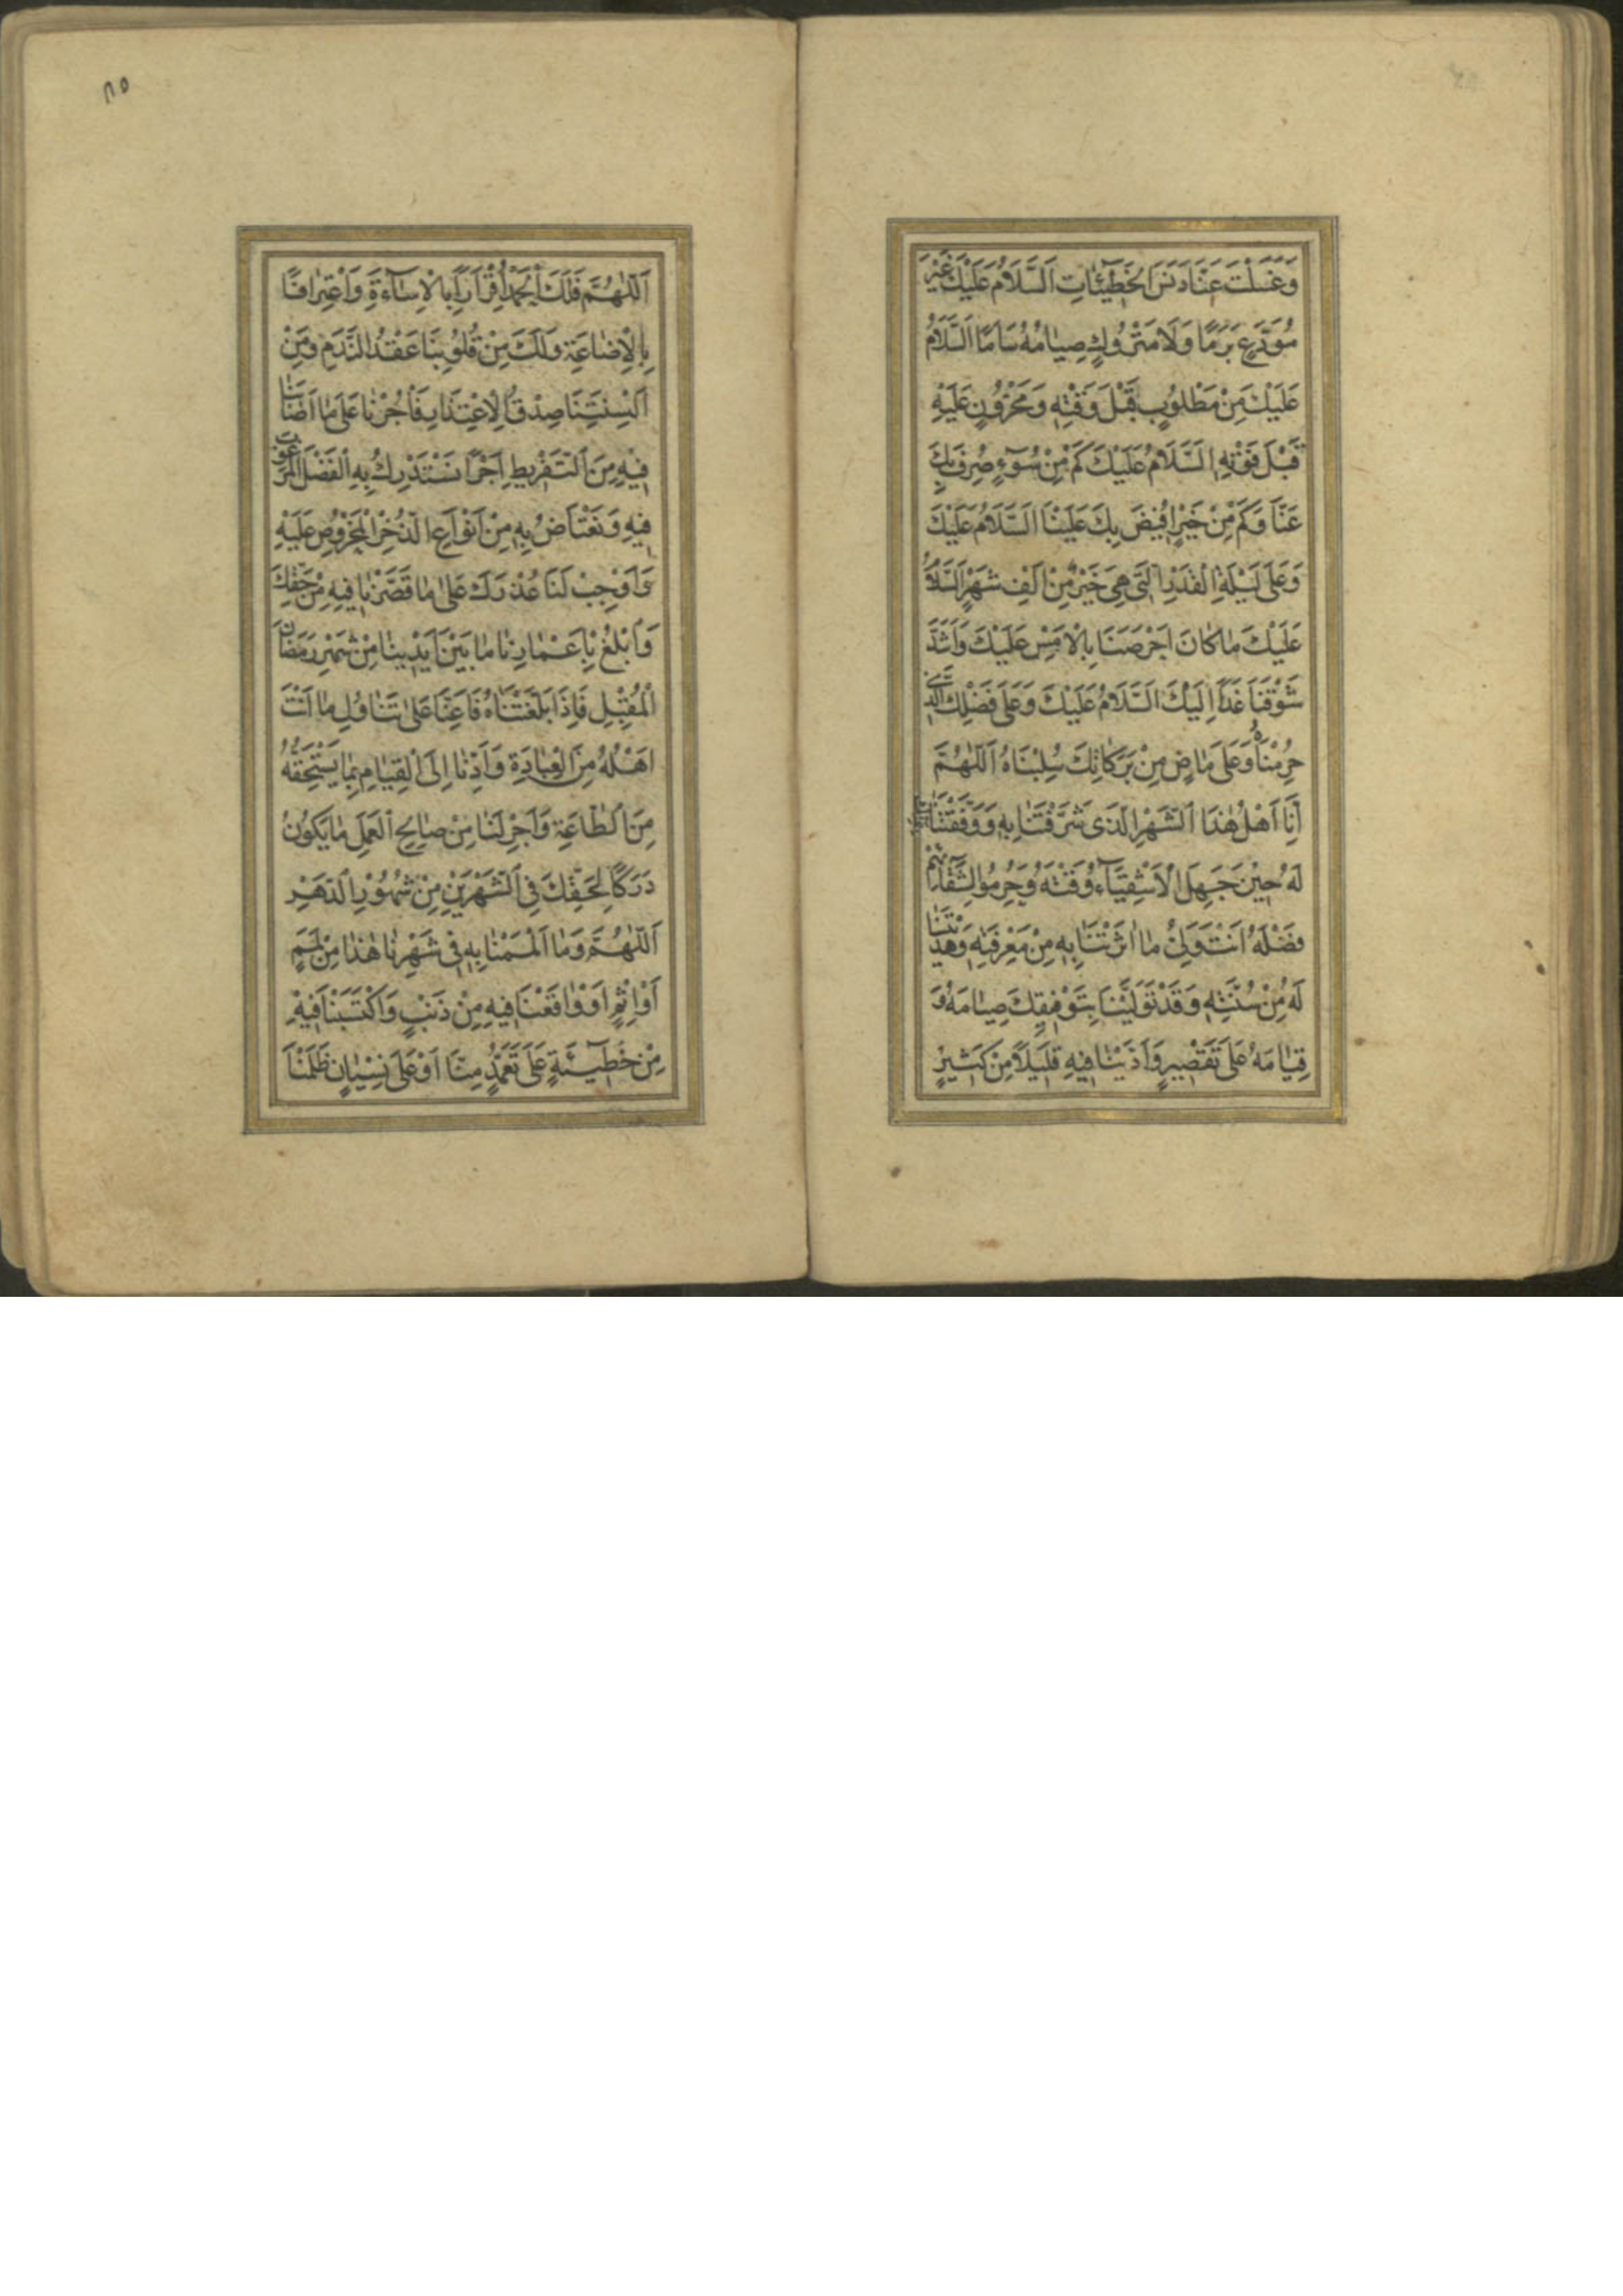 وَغَسَلْتَ عَنَّا دَنَسَ الْخَطِيئَاتِ اَلسَّلَامُ عَلَيْكَ غَيْرَ
مُوَدَّعٍ بَرَمًا وَلَا مَتْرُوكٍ صِيَامُهُ سَأَمًا اَلسَّلَامُ
عَلَيْكَ مِنْ مَطْلُوبٍ قَبْلَ وَقْتِهِ وَمَحْزُونٍ عَلَيْهِ
قَبْلَ فَوْتِهِ اَلسَّلَامُ عَلَيْكَ كَمْ مِنْ سُوٓءٍ صُرِفَ بِكَ
عَنَّا وَكَمْ مِنْ خَيْرٍ اُفِيضَ بِكَ عَلَيْنَا اَلسَّلَامُ عَلَيْكَ
وَعَلَى لَيْلَةِ الْقَدْرِ الَّتِي هِيَ خَيْرٌ مِنْ اَلْفِ شَهْرٍ اَلسَّلَامُ
عَلَيْكَ مَا كَانَ اَحْرَصَنَا بِالْاَمْسِ عَلَيْكَ وَاَشَدَّ
شَوْقَنَا غَدًا اِلَيْكَ اَلسَّلَامُ عَلَيْكَ وَعَلَى فَضْلِكَ الَّذِي
حُرِمْنَاهُ وَعَلَى مَاضٍ مِنْ بَرَكَاتِكَ سُلِبْنَاهُ اَللّٰهُمَّ
اِنَّا اَهْلُ هٰذَا الشَّهْرِ الَّذِي شَرَّفْتَنَا بِهِ وَوَفَّقْتَنَا
لَهُ حِينَ جَهِلَ الْاَشْقِيَآءُ وَقْتَهُ وَحُرِمُوا لِشَقَآئِهِمْ
فَضْلَهُ اَنْتَ وَلِيُّ مَا اٰثَرْتَنَا بِهِ مِنْ مَعْرِفَتِهِ وَهَدَيْتَنَا
لَهُ مِنْ سُنَّتِهِ وَقَدْ تَوَلَّيْنَا بِتَوْفِيقِكَ صِيَامَهُ وَ
قِيَامَهُ عَلَى تَقْصِيرٍ وَاَدَّيْنَا فِيهِ قَلِيلًا مِنْ كَثِيرٍ
٨٥
اَللّٰهُمَّ فَلَكَ الْحَمْدُ اِقْرَارًا بِالْاِسَآءَةِ وَاعْتِرَافًا
بِالْاِضَاعَةِ وَلَكَ مِنْ قُلُوبِنَا عَقْدُ النَّدَمِ وَمِنْ
اَلْسِنَتِنَا صِدْقُ الْاِعْتِذَارِ فَأْجُرْنَا عَلَى مَا اَصَابَنَا
فِيهِ مِنَ التَّفْرِيطِ اَجْرًا نَسْتَدْرِكُ بِهِ الْفَضْلَ الْمَرْغُوبَ
فِيهِ وَنَعْتَاضُ بِهِ مِنْ اَنْوَاعِ الذُّخْرِ الْمَحْرُوصِ عَلَيْهِ
وَاَوْجِبْ لَنَا عُذْرَكَ عَلَى مَا قَصَّرْنَا فِيهِ مِنْ حَقِّكَ
وَابْلُغْ بِاَعْمَارِنَا مَا بَيْنَ اَيْدِينَا مِنْ شَهْرِ رَمَضَانَ
الْمُقْبِلِ فَاِذَا بَلَّغْتَنَاهُ فَاَعِنَّا عَلَى تَنَاوُلِ مَا اَنْتَ
اَهْلُهُ مِنَ الْعِبَادَةِ وَاَدِّنَا اِلَى الْقِيَامِ بِمَا يَسْتَحِقُّهُ
مِنَ الطَّاعَةِ وَاَجْرِ لَنَا مِنْ صَالِحِ الْعَمَلِ مَا يَكُونُ
دَرَكًا لِحَقِّكَ فِي الشَّهْرَيْنِ مِنْ شُهُورِ الدَّهْرِ
اَللّٰهُمَّ وَمَا اَلْمَمْنَا بِهِ فِي شَهْرِنَا هٰذَا مِنْ لَمَمٍ
اَوْ اِثْمٍ اَوْ وَاقَعْنَا فِيهِ مِنْ ذَنْبٍ وَاكْتَسَبْنَا فِيهِ
مِنْ خَطِيٓئَةٍ عَلَى تَعَمُّدٍ مِنَّا اَوْ عَلَى نِسْيَانٍ ظَلَمْنَا